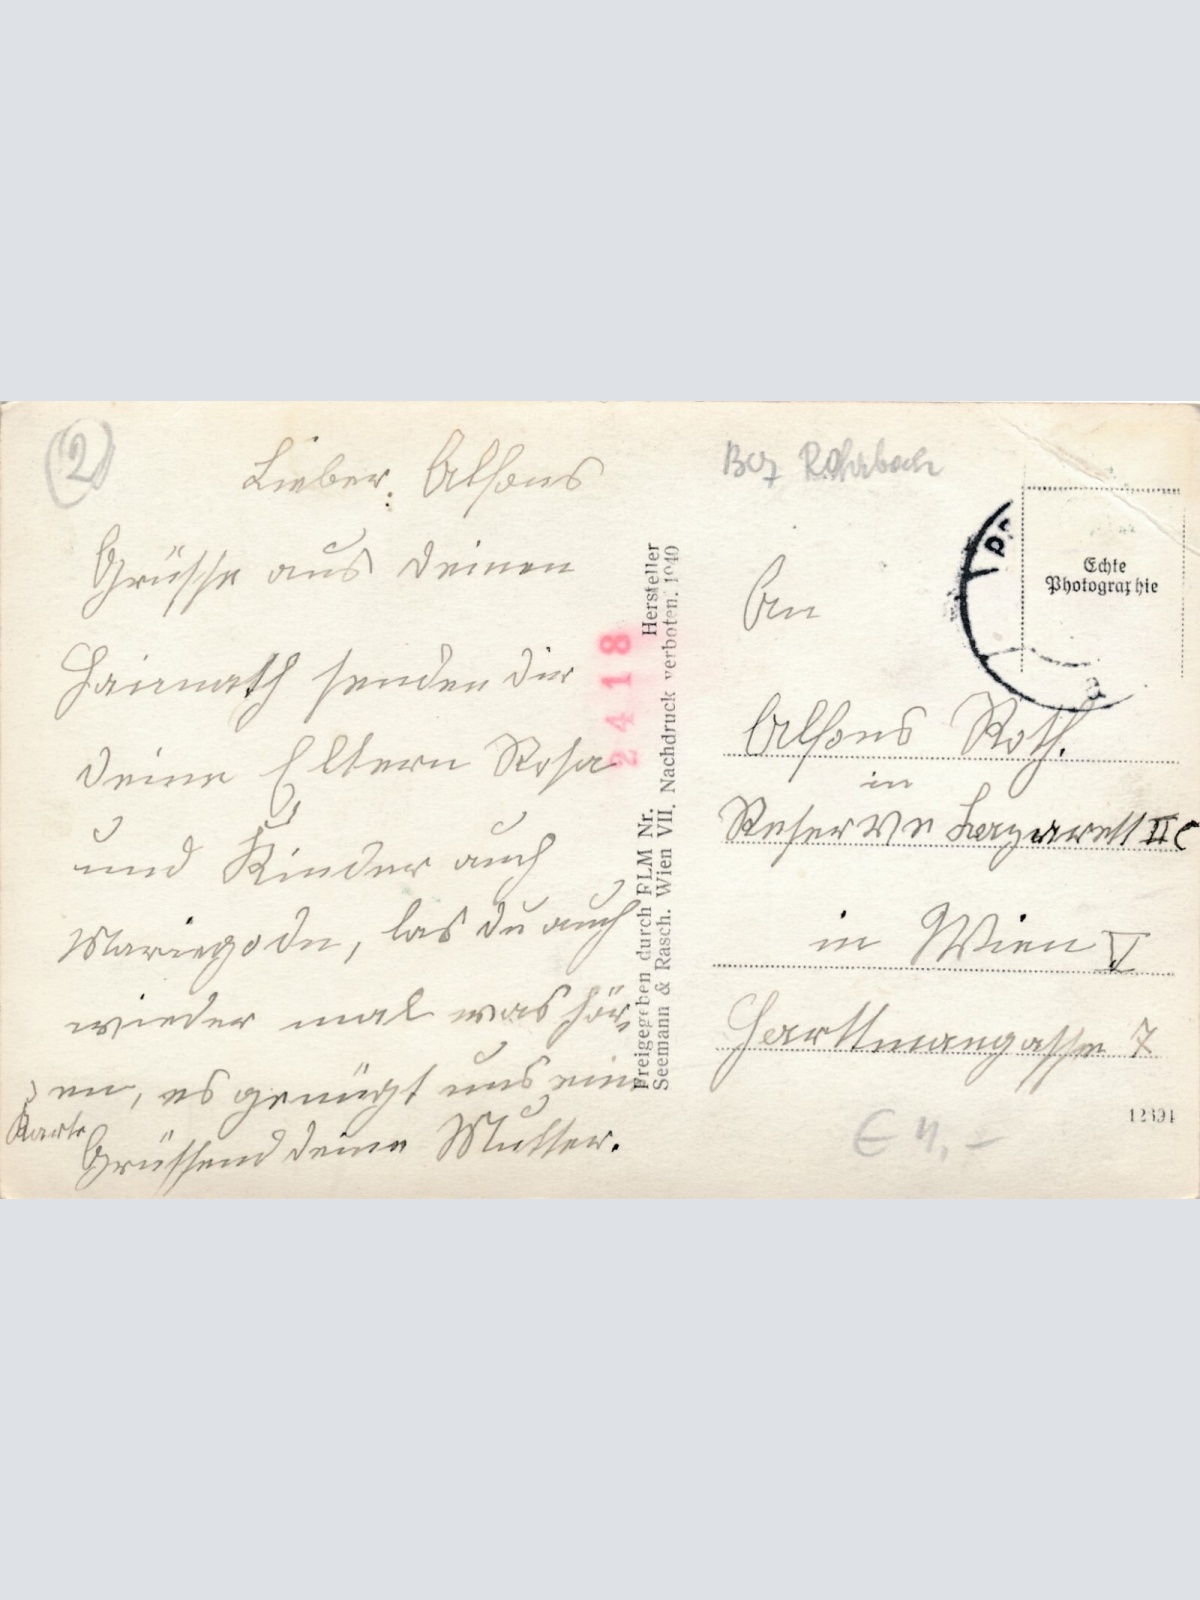 2
Lieber Alfons
Grüsse aus deinen
Heimath senden dir
deine Eltern Rosa
und Kinder auch
Mariegodn, las du auch
wieder mal was hör-
en, es genügt uns eine
Karte
Grüssend deine Mutter.
Freigegeben durch FLM Nr. 24118 Hersteller
Seemann & Rasch. Wien VII. Nachdruck verboten. 1940
Bez Rohrbach
Echte
Photographie
An
Alfons Roth.
in
Reserve Lazarett II C
in Wien V
Harttmangasse 7
12391
€ 4,-